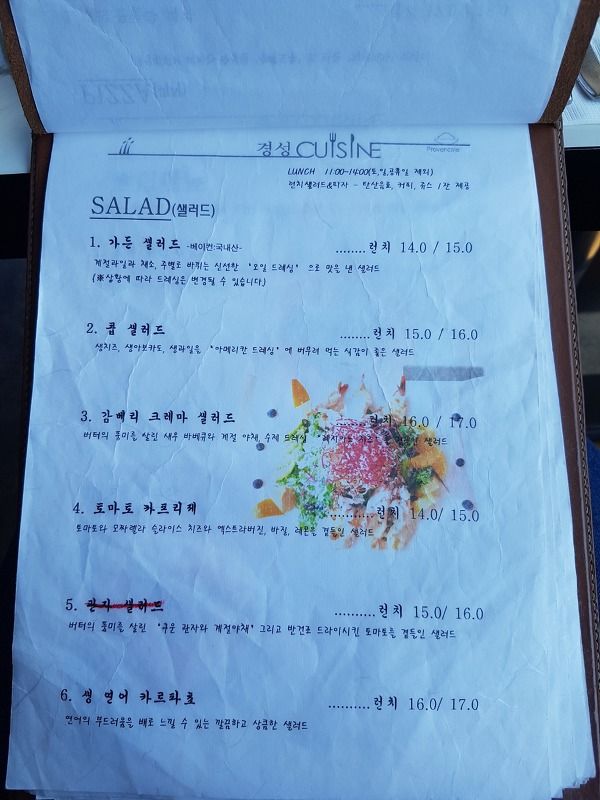 경성 CUISINE
Provencale
LUNCH 11:00-14:00(토,일,공휴일 제외)
런치샐러드&피자 - 탄산음료, 커피, 쥬스 1잔 제공
SALAD(샐러드)
1. 가든 샐러드 -베이컨:국내산- ........런치 14.0 / 15.0
계절과일과 채소, 주별로 바뀌는 신선한 "오일 드레싱" 으로 맛을 낸 샐러드
(※상황에 따라 드레싱은 변경될 수 있습니다)
2. 콥 샐러드 ........런치 15.0 / 16.0
생치즈, 생아보카도, 생과일을 "아메리칸 드레싱"에 버무려 먹는 식감이 좋은 샐러드
3. 감베리 크레마 샐러드 런치 16.0 / 17.0
버터의 풍미를 살린 새우 바베큐와 계절 야채, 수제 드레싱 샐러드
4. 토마토 카프리제 ...........런치 14.0/ 15.0
토마토와 모짜렐라 슬라이스 치즈와 엑스트라버진, 바질, 레몬을 곁들인 샐러드
5. 관자 샐러드 ..........런치 15.0/ 16.0
버터의 풍미를 살린 "구운 관자와 계절야채" 그리고 반건조 드라이시킨 토마토를 곁들인 샐러드
6. 생 연어 카르파쵸 ..........런치 16.0/ 17.0
연어의 부드러움을 배로 느낄 수 있는 깔끔하고 상큼한 샐러드